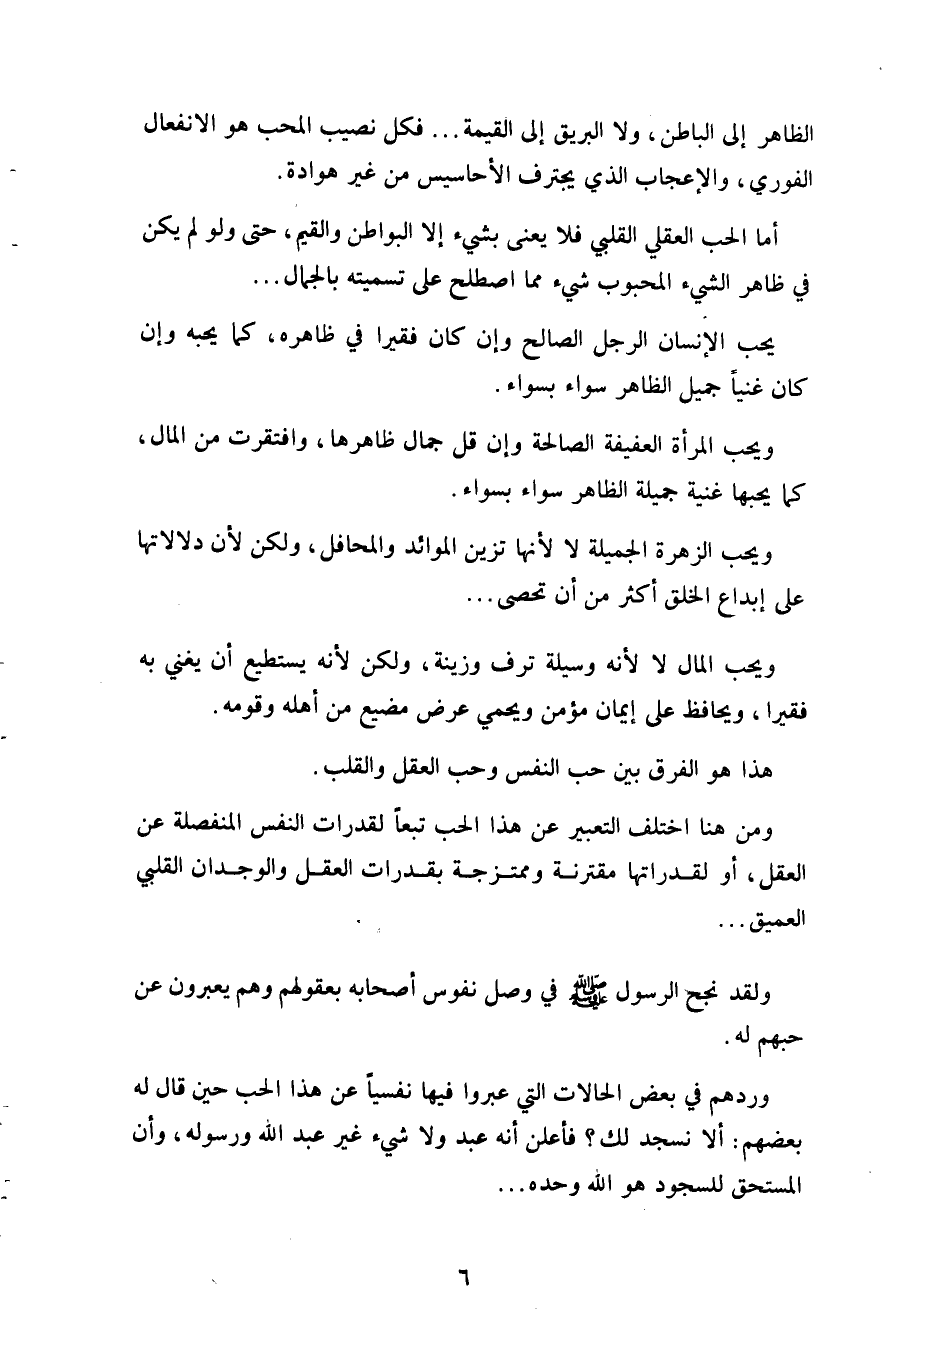 الظاهر إلى الباطن، ولا البريق إلى القيمة... فكل نصيب المحب هو الانفعال
الفوري، والإعجاب الذي يجترف الأحاسيس من غير هوادة.
أما الحب العقلي القلبي فلا يعنى بشيء إلا البواطن والقيم، حتى ولو لم يكن
في ظاهر الشيء المحبوب شيء مما اصطلح على تسميته بالجمال...
يحب الإنسان الرجل الصالح وإن كان فقيرا في ظاهره، كما يحبه وإن
كان غنياً جميل الظاهر سواء بسواء.
ويحب المرأة العفيفة الصالحة وإن قل جمال ظاهرها، وافتقرت من المال،
كما يحبها غنية جميلة الظاهر سواء بسواء.
ويحب الزهرة الجميلة لا لأنها تزين الموائد والمحافل، ولكن لأن دلالاتها
على إبداع الخلق أكثر من أن تحصى...
ويحب المال لا لأنه وسيلة ترف وزينة، ولكن لأنه يستطيع أن يغني به
فقيرا، ويحافظ على إيمان مؤمن ويحمي عرض مضيع من أهله وقومه.
هذا هو الفرق بين حب النفس وحب العقل والقلب.
ومن هنا اختلف التعبير عن هذا الحب تبعاً لقدرات النفس المنفصلة عن
العقل، أو لقـدراتها مقترنـة وممتـزجـة بقـدرات العقـل والوجـدان القلبي
العميق...
ولقد نجح الرسول ﷺ في وصل نفوس أصحابه بعقولهم وهم يعبرون عن
حبهم له.
وردهم في بعض الحالات التي عبروا فيها نفسياً عن هذا الحب حين قال له
بعضهم: ألا نسجد لك؟ فأعلن أنه عبد ولا شيء غير عبد الله ورسوله، وأن
المستحق للسجود هو الله وحده...
٦